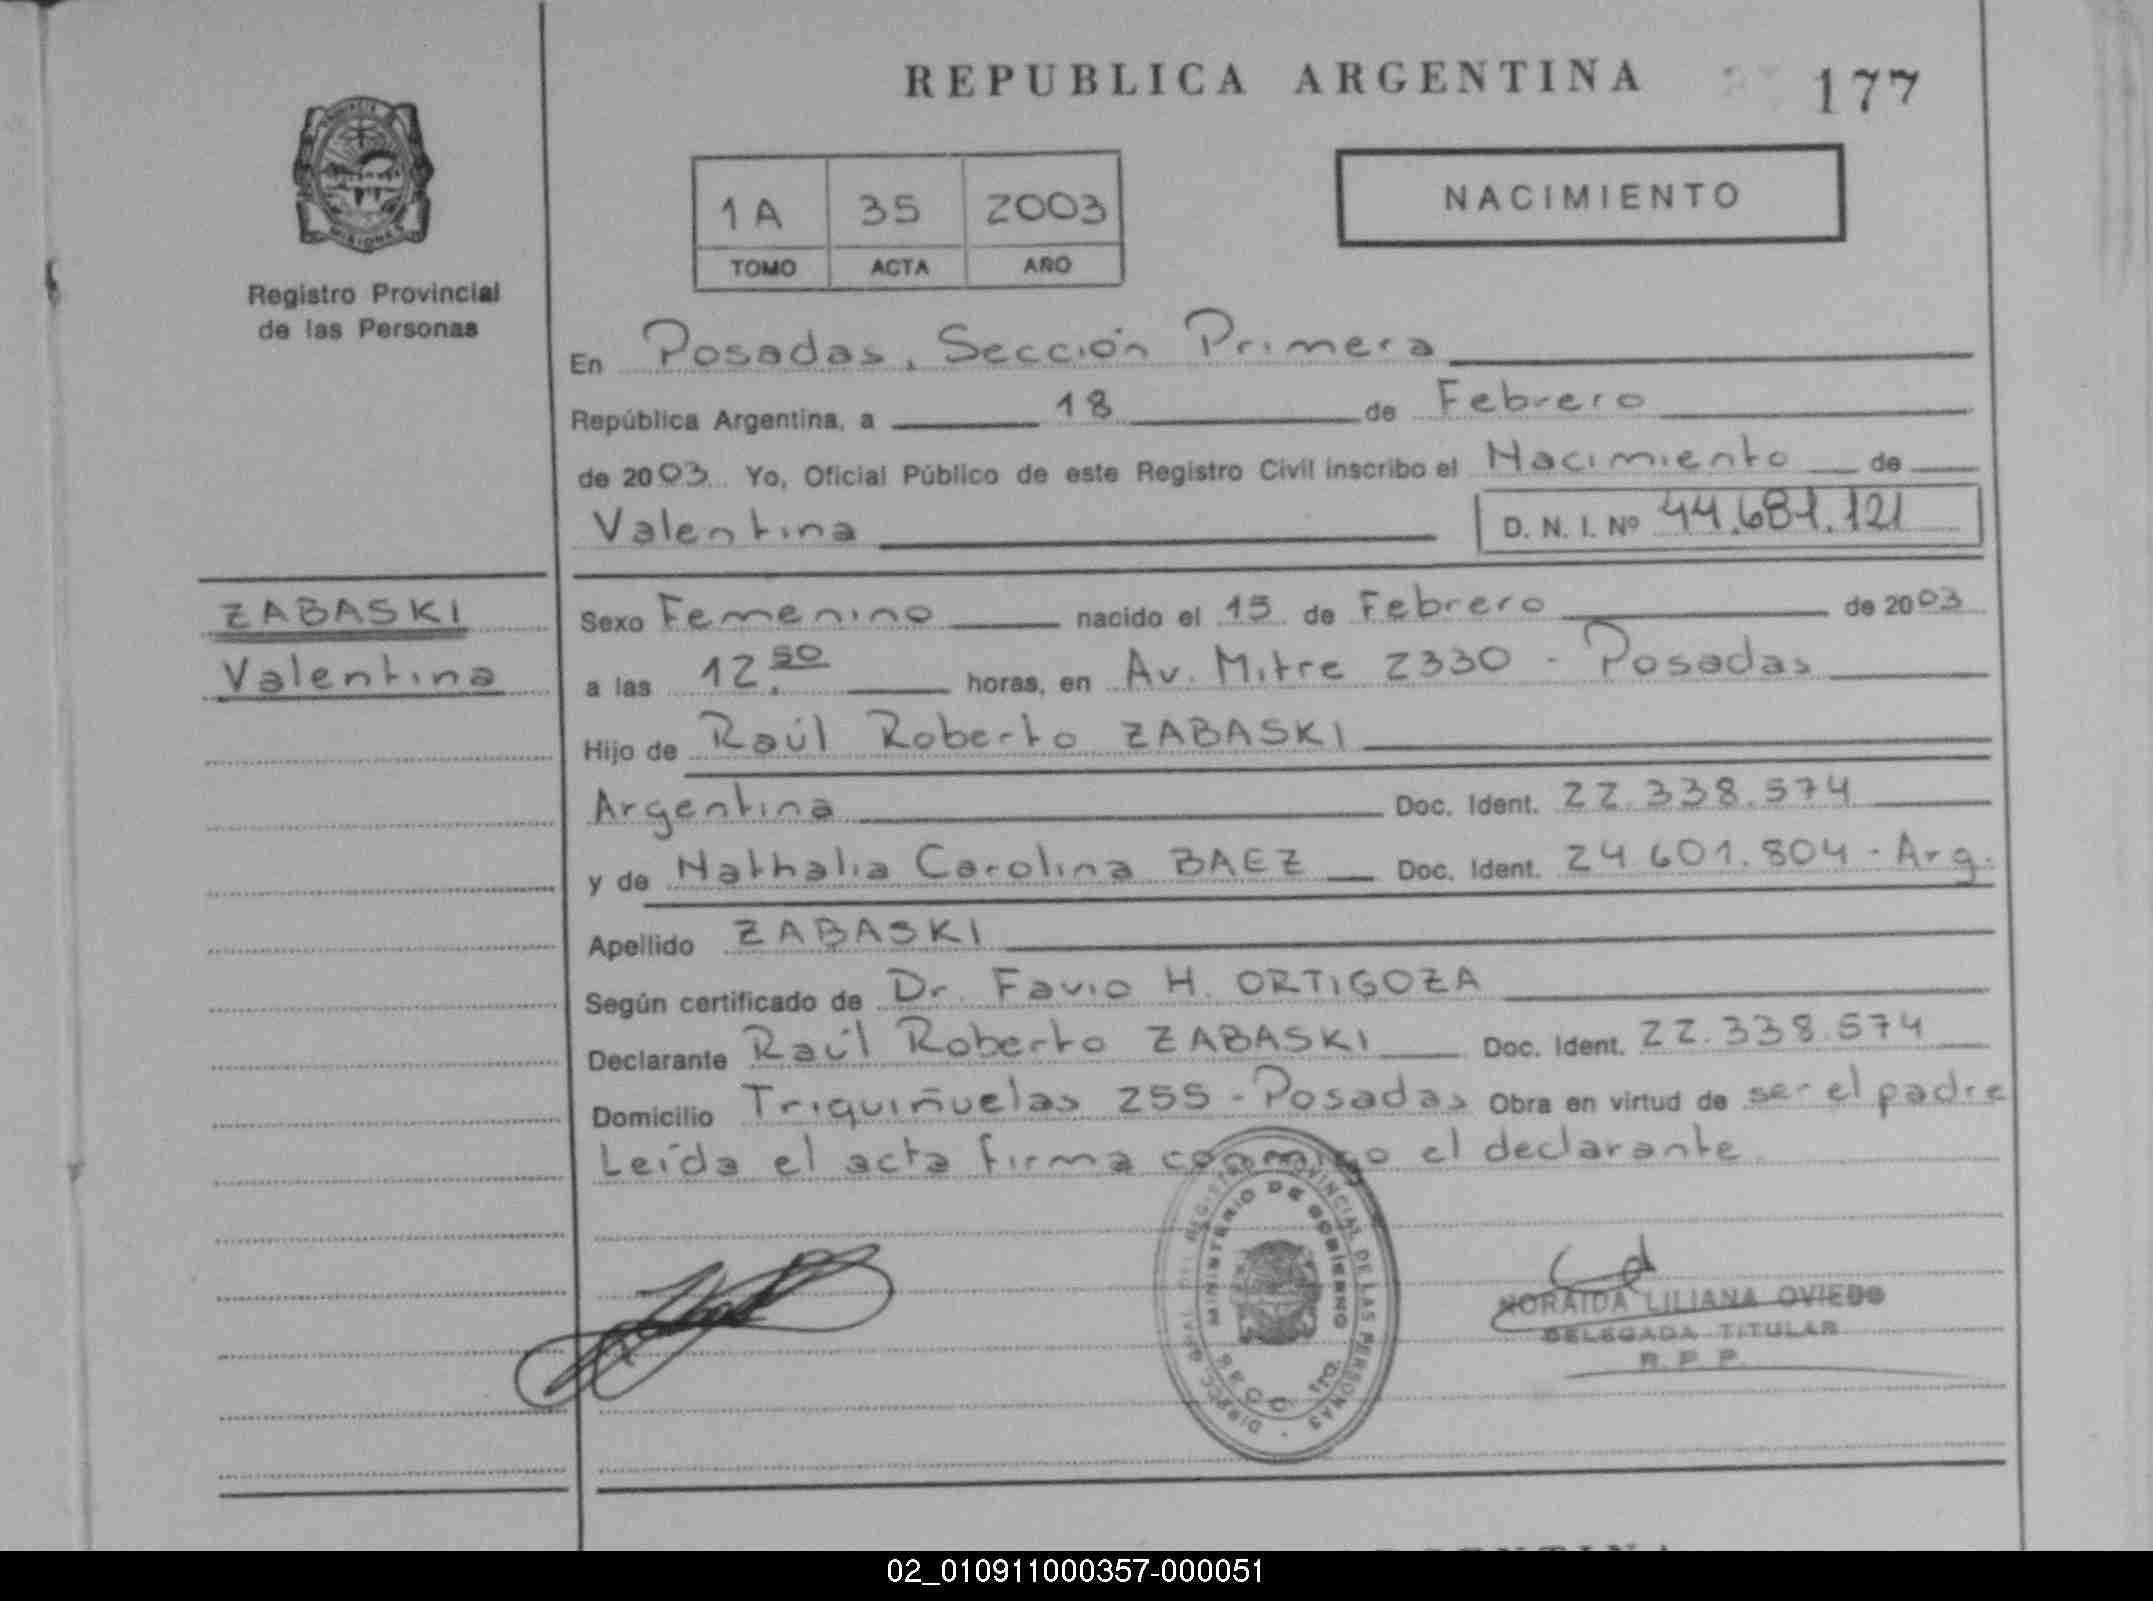 REPUBLICA ARGENTINA 177
PROVINCIA
MISIONES
Registro Provincial
de las Personas
1A 35 2003
TOMO ACTA AÑO
NACIMIENTO
En Posadas, Sección Primera
República Argentina, a 18 de Febrero
de 2003 Yo, Oficial Público de este Registro Civil inscribo el Nacimiento de
Valentina D. N. I. Nº 44.681.121
ZABASKI
Valentina
Sexo Femenino nacido el 15 de Febrero de 2003
a las 12.50 horas, en Av. Mitre 2330 - Posadas
Hijo de Raúl Roberto ZABASKI
Argentina Doc. Ident. 22.338.574
y de Nathalia Carolina BAEZ Doc. Ident. 24.601.804 - Arg.
Apellido ZABASKI
Según certificado de Dr. Favio H. ORTIGOZA
Declarante Raúl Roberto ZABASKI Doc. Ident. 22.338.574
Domicilio Triquiñuelas 255 - Posadas Obra en virtud de ser el padre
Leída el acta firma conmigo el declarante
MINISTERIO DE GOBIERNO
DE LAS PERSONAS
NORAIDA LILIANA OVIEDO
DELEGADA TITULAR
R. P. P.
02_010911000357-000051